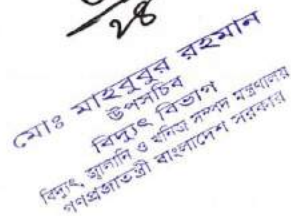 ২৪
মোঃ মাহবুবুর রহমান
উপসচিব
বিদ্যুৎ বিভাগ
বিদ্যুৎ, জ্বালানি ও খনিজ সম্পদ মন্ত্রণালয়
গণপ্রজাতন্ত্রী বাংলাদেশ সরকার